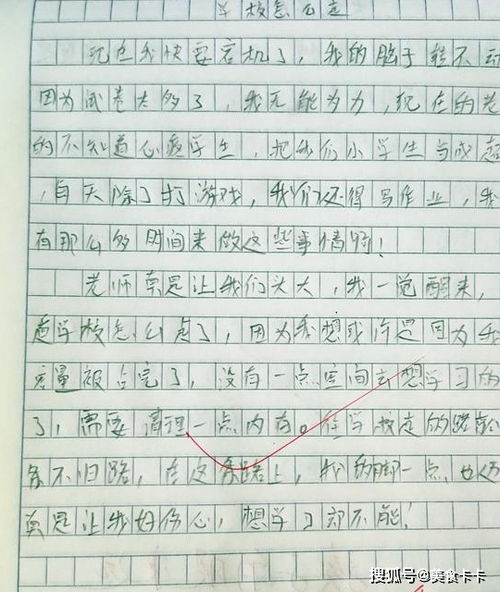 学校怎么走
现也我快要宕机了，我的脑子转不动
因为试卷太多了，我无能为力，现在的老
的不知道心疼学生，把我们小学生当成超
，白天除了打游戏，我们还得写作业，我
有那么多时间来做这些事情啊！
老师真是让我们头大，我一觉醒来，
道学校怎么走了，因为我想或许是因为我
容量被占完了，没有一点空间去想学习的
了，需要清理一点内存。往学校走的路
条不归路，在这条路上，我的脚一点也
真是让我好伤心，想学习却不能！
搜狐号@美食卡卡